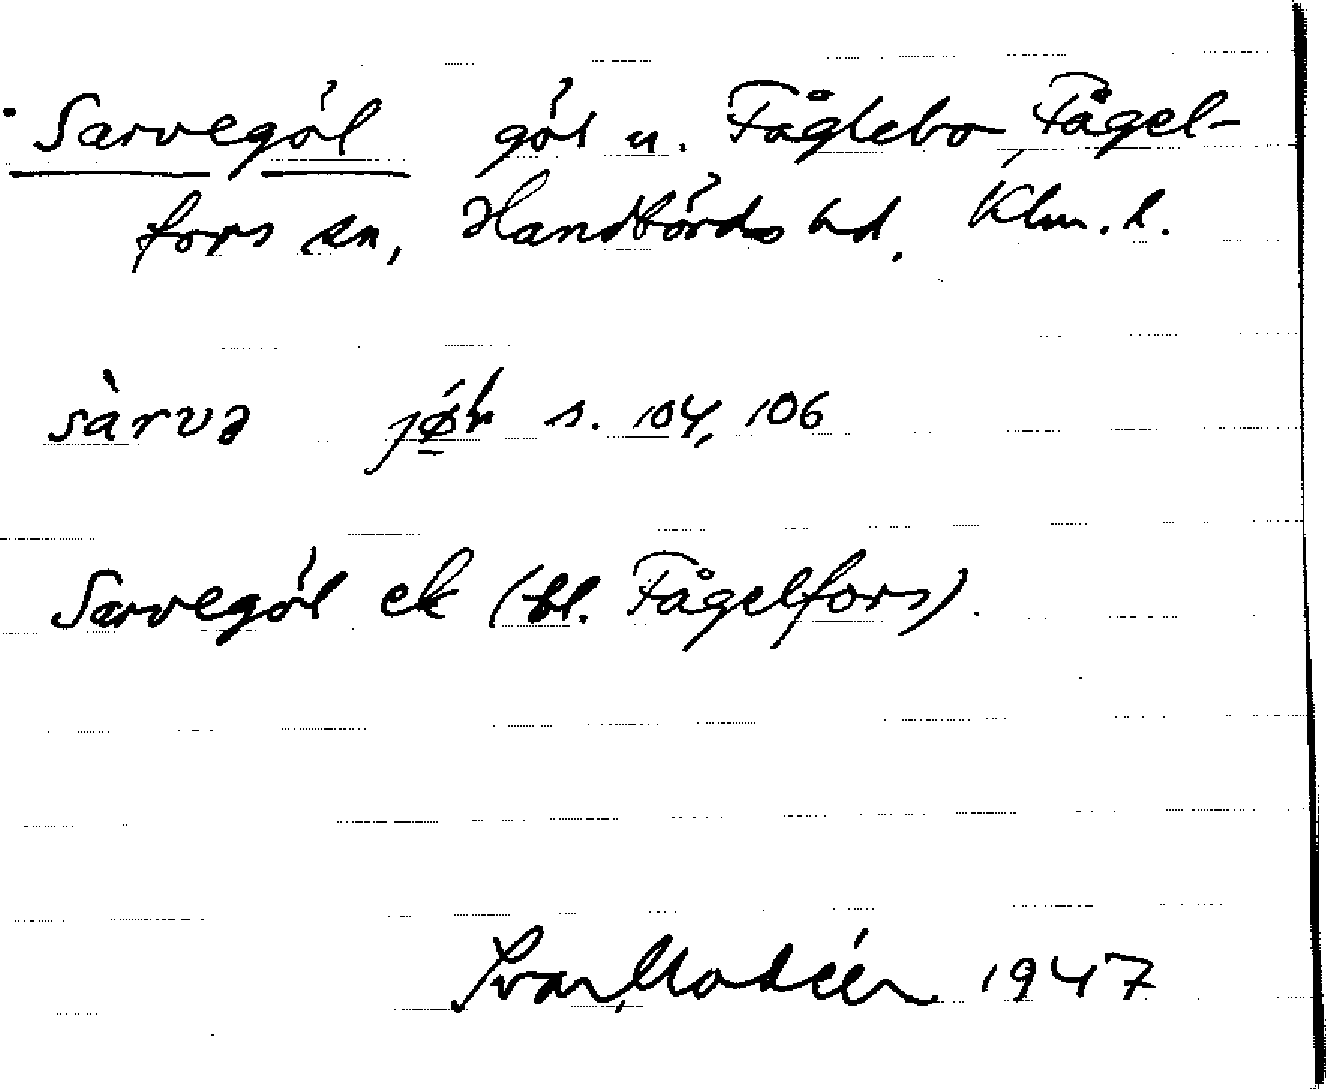 Sarvegöl göl u. Fåglebo, Fågel-
fors sn, Handbörds hd. Klm. l.
sàrvə s. 104, 106
Sarvegöl ek (bl. Fågelfors).
Ivar Modéer 1947